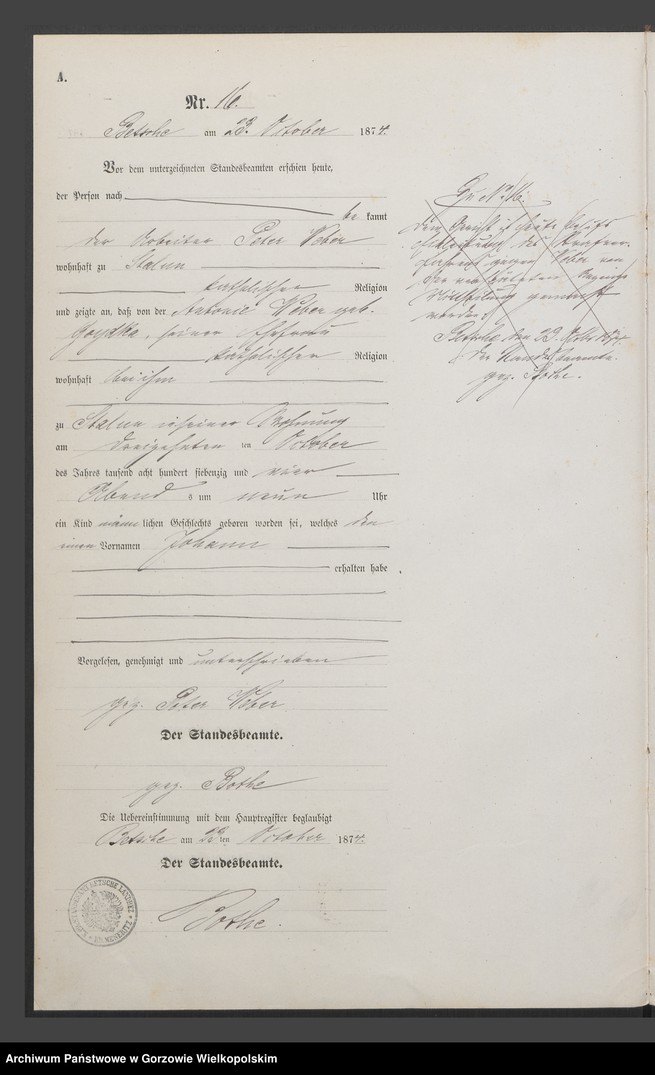 A.
Nr. 16.
Betsche am 23. October 1874.
Vor dem unterzeichneten Standesbeamten erschien heute,
der Person nach
be kannt
der Arbeiter Peter Weber
wohnhaft zu Stalun
katholischer Religion
und zeigte an, daß von der Antonie Weber geb.
seiner Ehefrau
katholischer Religion
wohnhaft bei ihm
zu Stalun in seiner Wohnung
am dreizehnten ten October
des Jahres tausend acht hundert siebenzig und vier
Abend s um neun Uhr
ein Kind männ lichen Geschlechts geboren worden sei, welches den
einen Vornamen Johann
erhalten habe.
Vorgelesen, genehmigt und unterschrieben
gez. Peter Weber
Der Standesbeamte.
gez. Bothe
Die Uebereinstimmung mit dem Hauptregister beglaubigt
Betsche am ten October 1874.
Der Standesbeamte.
Bothe.
Zu No 16.
Dem Gericht ist heute behufs
des
gegen Weber von
der verspäteten Anzeige
Mittheilung gemacht
worden.
Betsche, den 23. Octbr. 1874
Der Standesbeamte.
gez. Bothe.
Archiwum Państwowe w Gorzowie Wielkopolskim